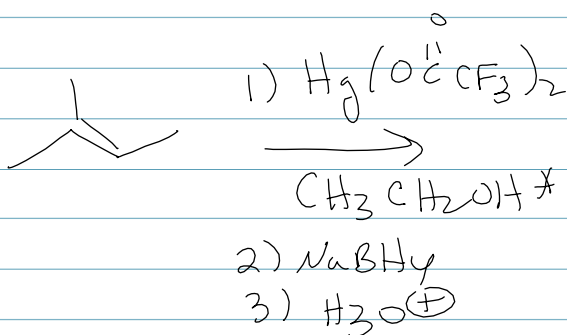 O
||
1) Hg(OCCF3)2
CH3CH2OH*
2) NaBH4
3) H3O+